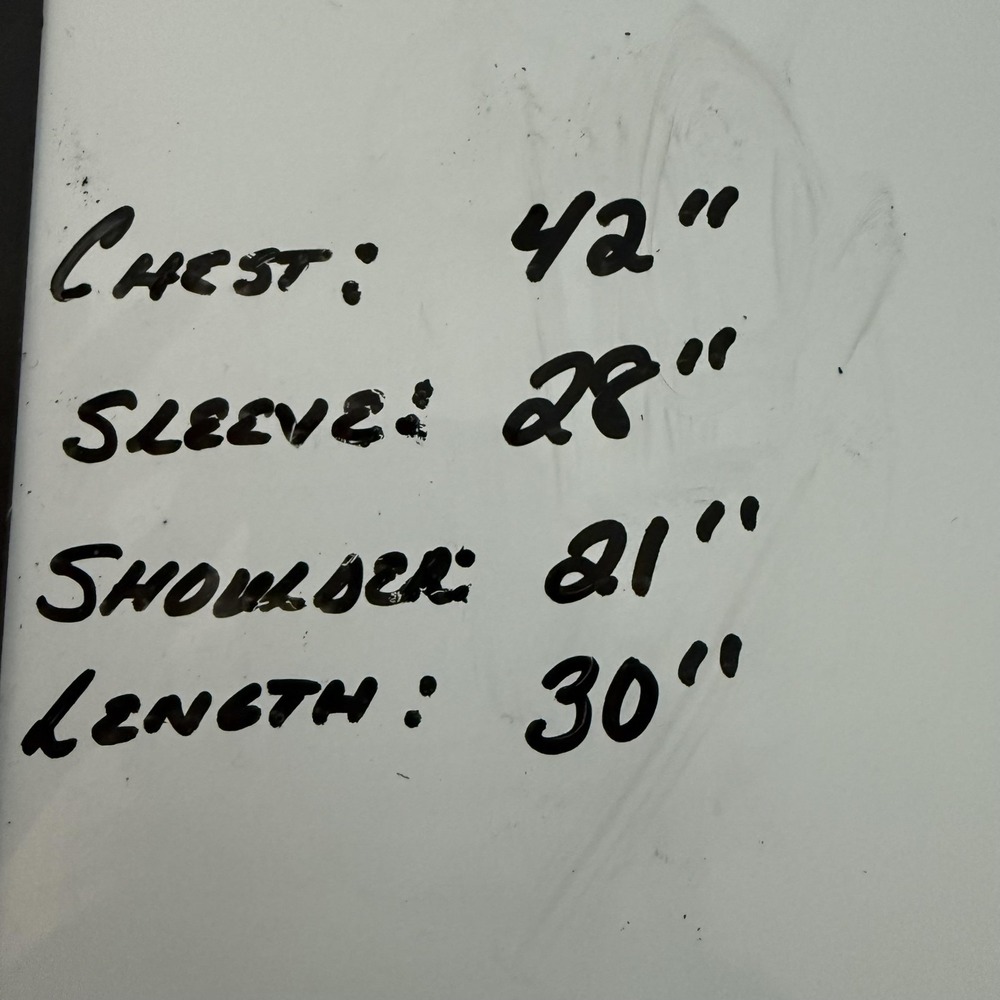 CHEST: 42"
SLEEVE: 28"
SHOULDER: 21"
LENGTH: 30"